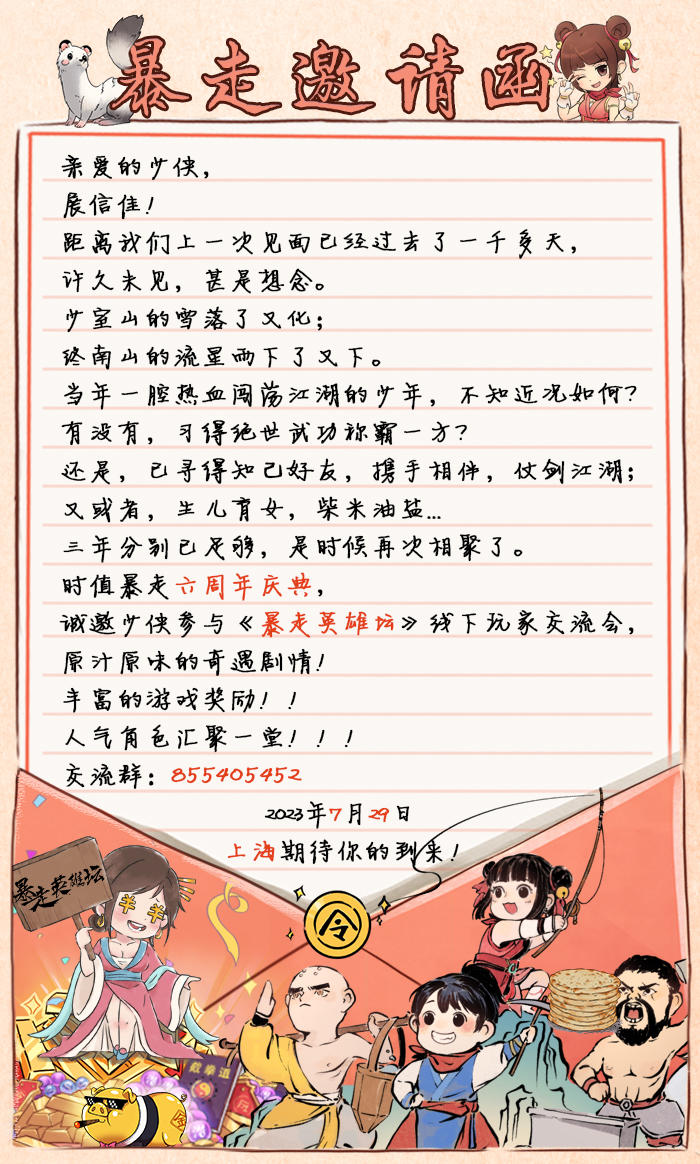 暴走邀请函
亲爱的少侠，
展信佳！
距离我们上一次见面已经过去了一千多天，
许久未见，甚是想念。
少室山的雪落了又化；
终南山的流星雨下了又下。
当年一腔热血闯荡江湖的少年，不知近况如何？
有没有，习得绝世武功称霸一方？
还是，已寻得知己好友，携手相伴，仗剑江湖；
又或者，生儿育女，柴米油盐...
三年分别已足够，是时候再次相聚了。
时值暴走六周年庆典，
诚邀少侠参与《暴走英雄坛》线下玩家交流会，
原汁原味的奇遇剧情！
丰富的游戏奖励！！
人气角色汇聚一堂！！！
交流群：855405452
2023年7月29日
上海期待你的到来！
暴走英雄坛
羊羊
令
截拳道
金